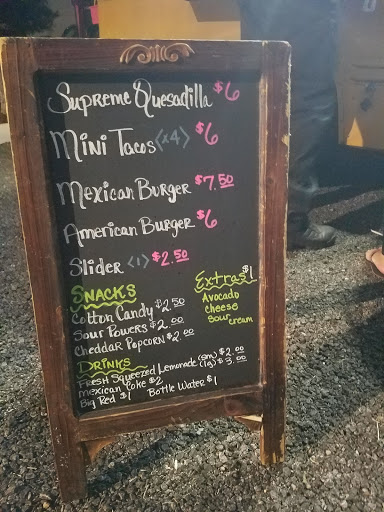 Supreme Quesadilla $6
Mini Tacos (x4) $6
Mexican Burger $7.50
American Burger $6
Slider (1) $2.50
SNACKS
Cotton Candy $2.50
Sour Powers $2.00
Cheddar Popcorn $2.00
Extras $1
Avocado
cheese
sour cream
DRINKS
Fresh Squeezed Lemonade (sm) $2.00
(lg) $3.00
mexican Coke $2
Big Red $1 Bottle Water $1